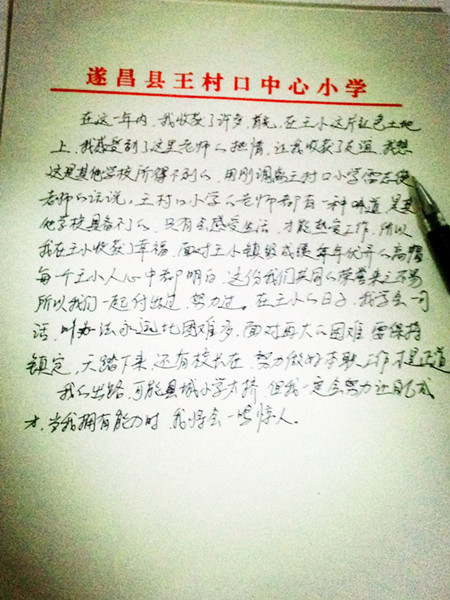 遂昌县王村口中心小学
在这一年内,我收获了许多,首先,在王小这片红色土地
上,我感受到了这里老师的热情,让我收获了友谊,我想
这是其他学校所得不到的,用刚调离王村口小学雷
老师的话说,王村口小学的老师都有一种味道,是其
他学校具备不了的,只有会感受生活,才能热爱工作,所以
我在王小收获了幸福,面对王小镇级成绩年年优秀的高帽
每个王小人心中都明白,这份我们共同的荣誉来之不易
所以我们一起付出过,努力过。在王小的日子,我学会一句
话,叫办法永远比困难多,面对再大的困难,需保持
镇定,天踏下来,还有校长在,努力做好本职工作,才是正道
我的出路,可能县城小学太挤,但我一定会努力让自己成
才,当我拥有能力时,我将会一些惊人。